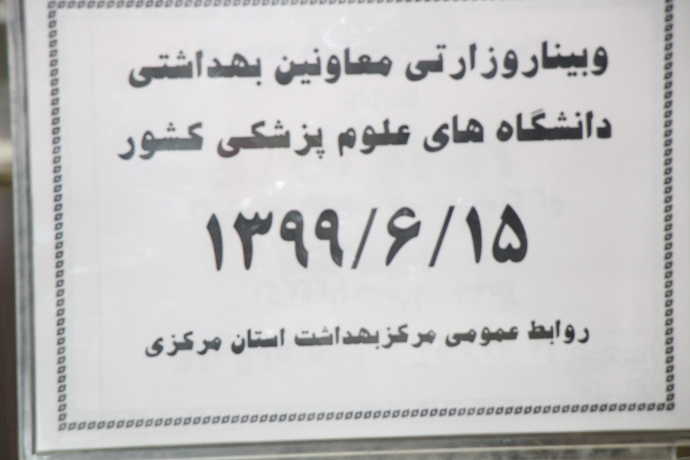 وبیناروزارتی معاونین بهداشتی
دانشگاه های علوم پزشکی کشور
۱۳۹۹/۶/۱۵
روابط عمومی مرکزبهداشت استان مرکزی